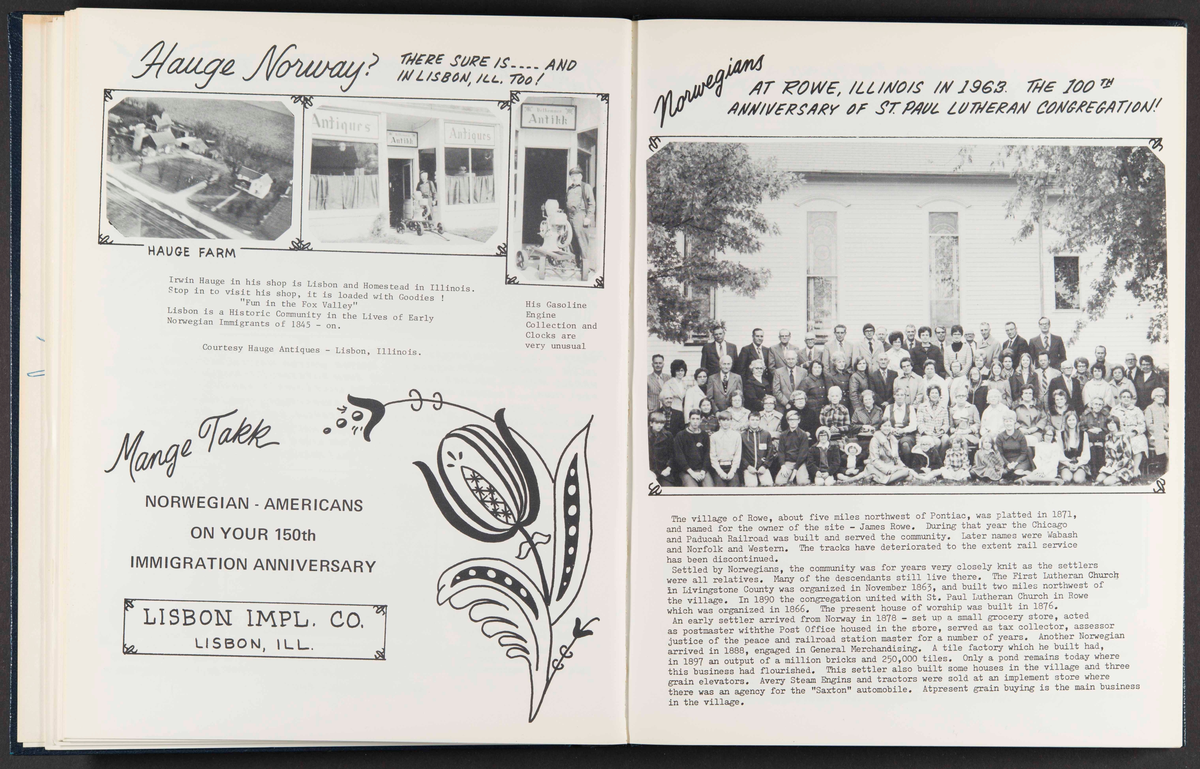 Hauge Norway?
THERE SURE IS.... AND
IN LISBON, ILL. TOO!
Antiques
Antikk
Antiques
Antikk
HAUGE FARM
Irwin Hauge in his shop is Lisbon and Homestead in Illinois.
Stop in to visit his shop, it is loaded with Goodies !
"Fun in the Fox Valley"
Lisbon is a Historic Community in the Lives of Early
Norwegian Immigrants of 1845 - on.
Courtesy Hauge Antiques - Lisbon, Illinois.
His Gasoline
Engine
Collection and
Clocks are
very unusual
Mange Takk
NORWEGIAN - AMERICANS
ON YOUR 150th
IMMIGRATION ANNIVERSARY
LISBON IMPL. CO.
LISBON, ILL.
Norwegians
AT ROWE, ILLINOIS IN 1963. THE 100TH
ANNIVERSARY OF ST. PAUL LUTHERAN CONGREGATION!
The village of Rowe, about five miles northwest of Pontiac, was platted in 1871,
and named for the owner of the site - James Rowe. During that year the Chicago
and Paducah Railroad was built and served the community. Later names were Wabash
and Norfolk and Western. The tracks have deteriorated to the extent rail service
has been discontinued.
Settled by Norwegians, the community was for years very closely knit as the settlers
were all relatives. Many of the descendants still live there. The First Lutheran Church
in Livingstone County was organized in November 1863, and built two miles northwest of
the village. In 1890 the congregation united with St. Paul Lutheran Church in Rowe
which was organized in 1866. The present house of worship was built in 1876.
An early settler arrived from Norway in 1878 - set up a small grocery store, acted
as postmaster withthe Post Office housed in the store, served as tax collector, assessor
justice of the peace and railroad station master for a number of years. Another Norwegian
arrived in 1888, engaged in General Merchandising. A tile factory which he built had,
in 1897 an output of a million bricks and 250,000 tiles. Only a pond remains today where
this business had flourished. This settler also built some houses in the village and three
grain elevators. Avery Steam Engins and tractors were sold at an implement store where
there was an agency for the "Saxton" automobile. Atpresent grain buying is the main business
in the village.